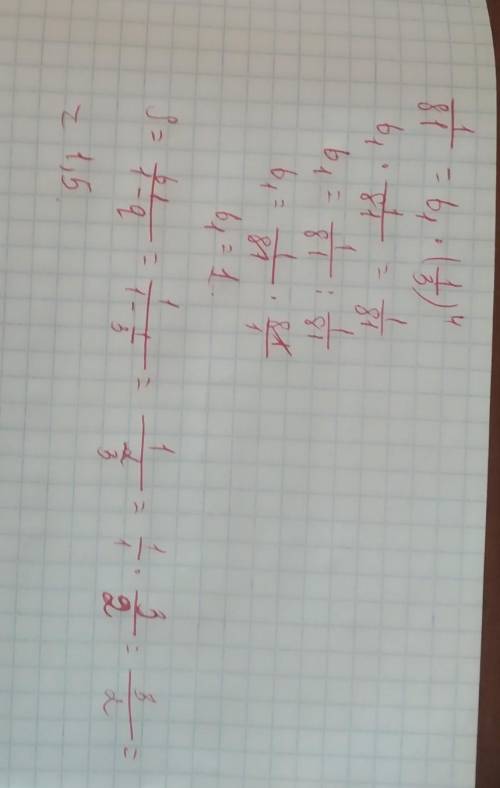 1/81 = b₁ · (1/3)⁴
b₁ · 1/81 = 1/81
b₁ = 1/81 : 1/81
b₁ = 1/81 · 81/1
b₁ = 1.
S = b₁/(1-q) = 1/(1-1/3) = 1/(2/3) = 1/1 · 3/2 = 3/2 =
= 1,5